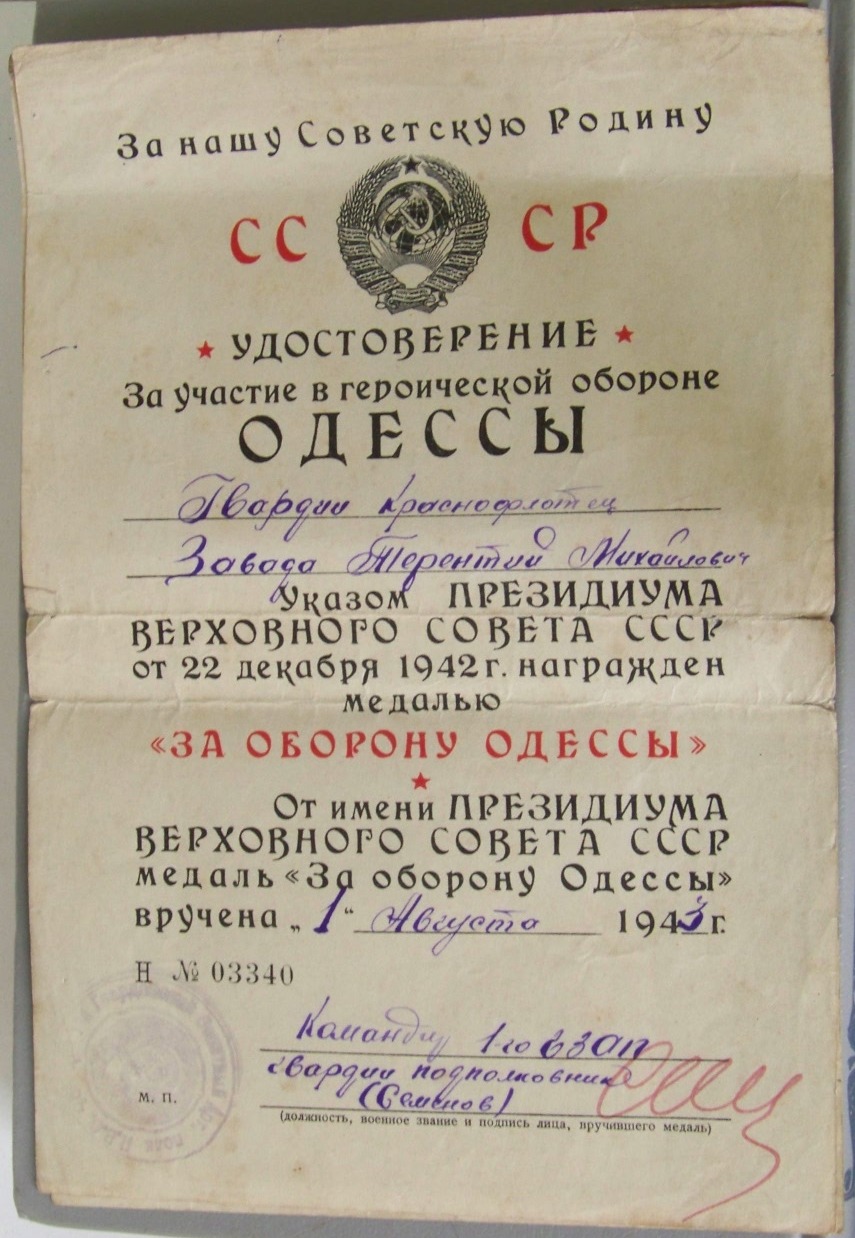 За нашу Советскую Родину
СС СР
УДОСТОВЕРЕНИЕ
За участие в героической обороне
ОДЕССЫ
Гвардии краснофлотец
Завада Терентий Михайлович
Указом ПРЕЗИДИУМА
ВЕРХОВНОГО СОВЕТА СССР
от 22 декабря 1942 г. награжден
медалью
«ЗА ОБОРОНУ ОДЕССЫ»
От имени ПРЕЗИДИУМА
ВЕРХОВНОГО СОВЕТА СССР
медаль «За оборону Одессы»
вручена „1“ Августа 1943 г.
Н № 03340
Командир 1-го
гвардии подполковник
(Семенов)
М. П.
(должность, военное звание и подпись лица, вручившего медаль)